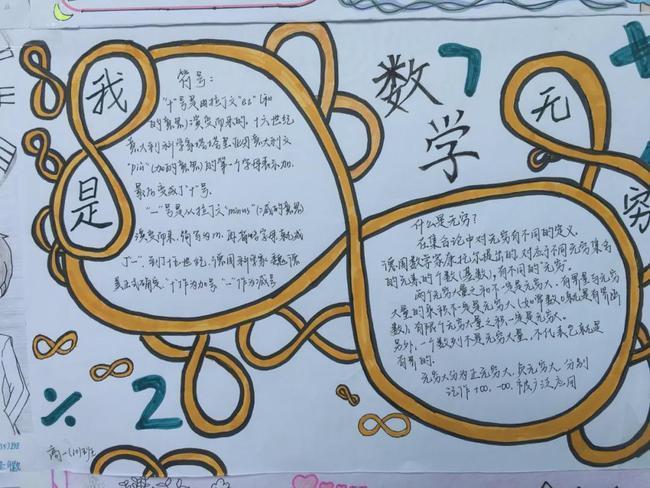 我
是
数
学
7
无
穷
符号：
"十"号是由拉丁文"et"(和
的意思)演变而来的。十六世纪
意大利科学家塔塔里亚用意大利文
"più"(加的意思)的第一个字母表示加，
最后变成了"十"号。
"一"号是从拉丁文"minus"(减的意思)
演变而来，简写为m，再省略字母就成
了"一"。到了十五世纪，德国科学家魏德
美正式确定，"十"作为加号，"一"作为减号
什么是无穷？
在集合论中对无穷有不同的定义。
德国数学家康托尔提出的，对应于不同无穷集合
的元素的个数(基数)，有不同的"无穷"。
两个无穷大量之和不一定是无穷大，有界量与无穷
大量的乘积不一定是无穷大(如常数0就是有界函
数)，有限个无穷大量之积一定是无穷大。
另外，一个数列不是无穷大量，不代表它就是
有界的。
无穷大分为正无穷大、负无穷大，分别
记作+∞、-∞，
÷ 2
高一(10)班